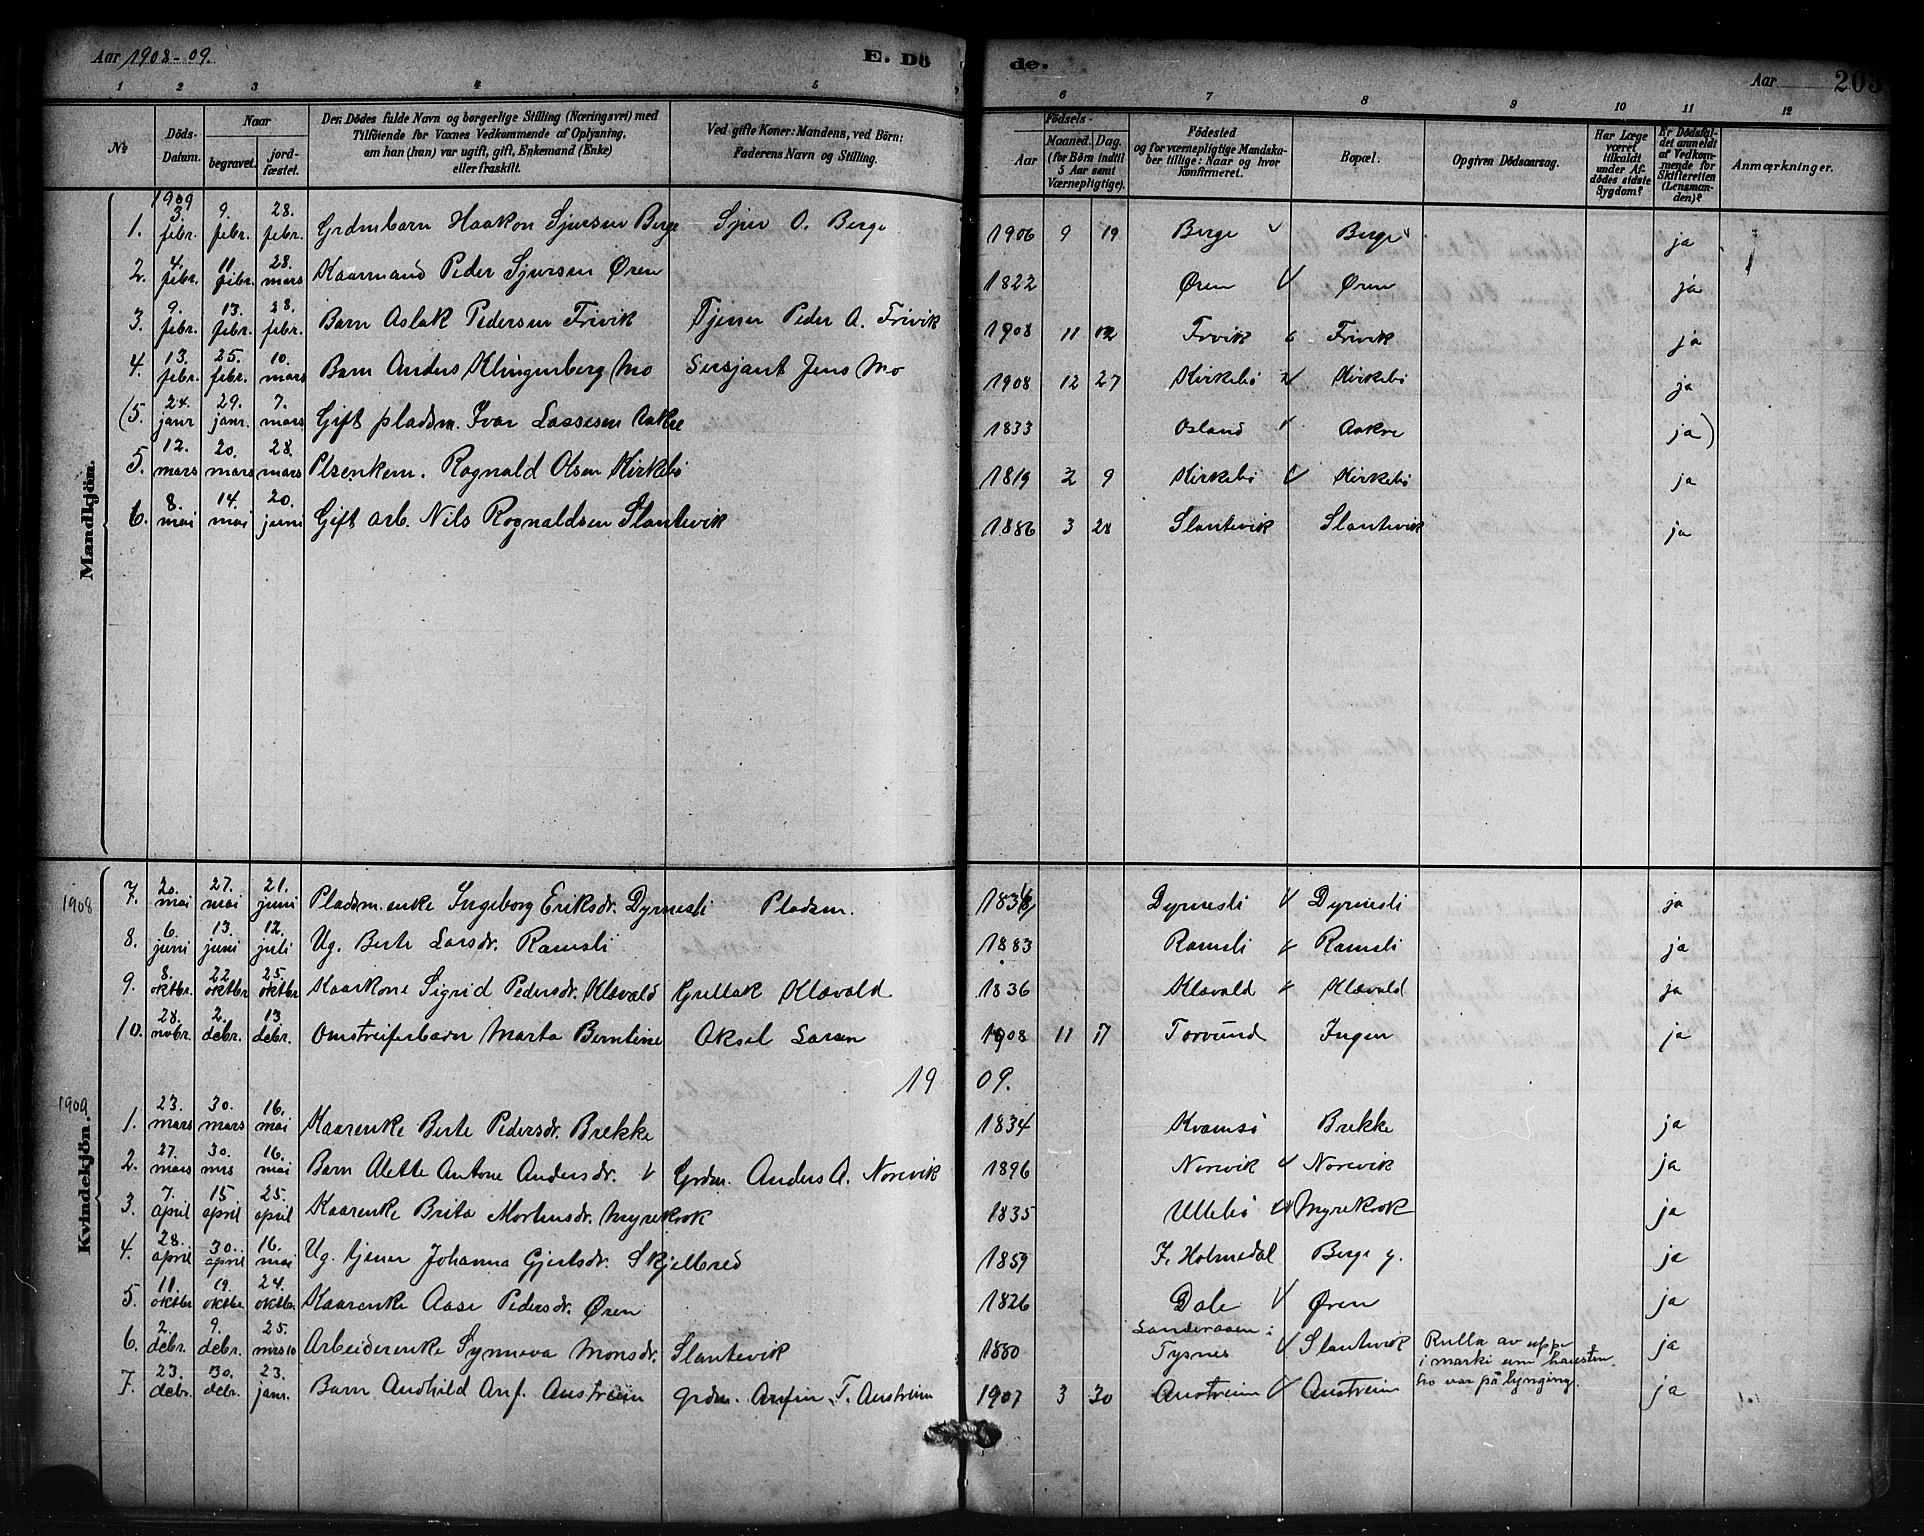 Aar 1908-09.
E. Dö
de.
Aar
203
1 2 3 4 5 6 7 8 9 10 11 12
No
Döds-Datum.
Naar
begravet.
jord-fæstet.
Den Dödes fulde Navn og borgerlige Stilling (Næringsvei) med
Tilföiende for Voxnes Vedkommende af Oplysning,
om han (hun) var ugift, gift, Enkemand (Enke)
eller fraskilt.
Ved gifte Koner: Mandens, ved Börn:
Faderens Navn og Stilling.
Födsels-
Aar
Maaned. Dag.
(for Börn indtil
5 Aar samt
Værnepligtige).
Födested
og for værnepligtige Mandska-
ber tillige: Naar og hvor
Konfirmeret.
Bopæl.
Opgiven Dödsaarsag.
Har Læge
været
tilkaldt
under Af-
dödes sidste
Sygdom?
Er Dödsfal-
det anmeldt
af Vedkom-
mende for
Skifteretten
(Lensman-
den)?
Anmærkninger.
Mandkjön.
1909
1. 3. febr. 9. febr. 28. febr. Grdmbarn Haakon Sjursen Berge Sjur O. Berge 1906 9 19 Berge Berge ja
2. 4. febr. 11. febr. 28. mars Kaarmand Peder Sjursen Øren 1822 Øren Øren ja
3. 9. febr. 13. febr. 28. febr. Barn Aslak Pedersen Frivik Tjener Peder A. Frivik 1908 11 12 Frivik Frivik ja
4. 13. febr. 25. febr. 10. mars Barn Anders Klingenberg Mo Sersjant Jens Mo 1908 12 27 Kirkebö Kirkebö ja
(5. 24. janr 29. janr. 7. mars Gift pladsm. Ivar Lassesen Aakre 1833 Osland Aakre ja)
5. 12. mars 20. mars 28. mars Plsenkem. Rognald Olsen Kirkebö 1819 2 9 Kirkebö Kirkebö ja
6. 8. mai 14. mai 20. juni Gift arb. Nils Rognaldsen Slantevik 1886 3 28 Slantevik Slantevik ja
Kvindekjön.
1908
7. 20. mai 27. mai 21. juni Pladsm. enke Ingeborg Eriksdr. Dyrnesli Pladsm. Dyrnesli Dyrnesli ja
8. 6. juni 13. juni 12. juli Ug. Berte Larsdr. Ramsli 1883 Ramsli Ramsli ja
9. 8. oktbr. 22. oktbr 25. oktbr Kaarkone Sigrid Pedersdr. Klævold Grellak Klævold 1836 Klævold Klævold ja
10. 28. nobr. 2. debr. 13 debr. Omstreiferbarn Marta Berntine Oksel Larsen 1908 11 17 Torvund Ingen ja
1909.
1909
1. 23. mars 30. mars 16. mai Kaarenke Berte Pedersdr. Brekke 1834 Kvamsö Brekke ja
2. 27. mars 30. mrs 16. mai Barn Alette Antone Andersdr. Grdm. Anders A. Norevik 1896 Norevik Norevik ja
3. 7. april 15 april 25. april Kaarenke Brita Mortensdr. Myrekrok 1835 Ullebö Myrekrok ja
4. 28. april 30. april 16. mai Ug. tjener Johanna Gjertsdr. Skjellerød 1859 Y. Holmedal Berge y. ja
5. 11. oktbr 19. oktbr 24. oktbr. Kaarenke Aase Pedersdr. Øren 1826 Dale Øren ja
6. 2. debr. 9. debr. 25. mrs 10 Arbeiderenke Synneva Monsdr. Slantevik 1880 Sanderaaen i Tysnes Slantevik Rulla av uppe
i marki um hausten.
ho var på lynging. ja
7. 23. debr. 30. debr. 23. janr. Barn Audhild Anf. Austreim grdm. Anfin T. Austreim 1907 3 30 Austreim Austreim ja